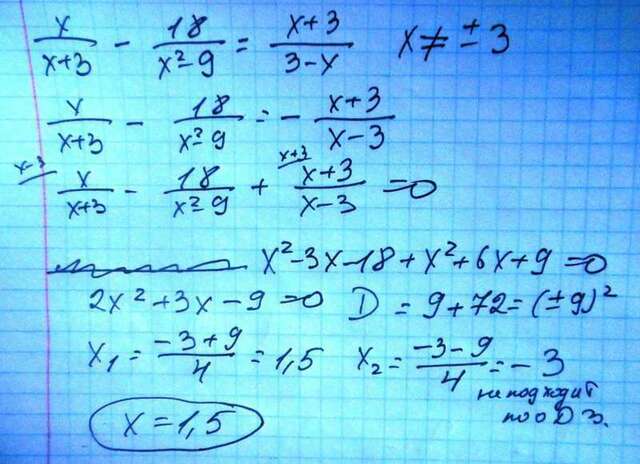 x/(x+3) - 18/(x²-9) = (x+3)/(3-x)   x ≠ ± 3
x/(x+3) - 18/(x²-9) = - (x+3)/(x-3)
x-3/ x/(x+3) - 18/(x²-9) + x+3/ (x+3)/(x-3) = 0
x²-3x-18+x²+6x+9=0
2x²+3x-9=0   D = 9+72=(±9)²
x₁ = (-3+9)/4 = 1,5   x₂ = (-3-9)/4 = -3
не подходит
по о D З.
x = 1,5